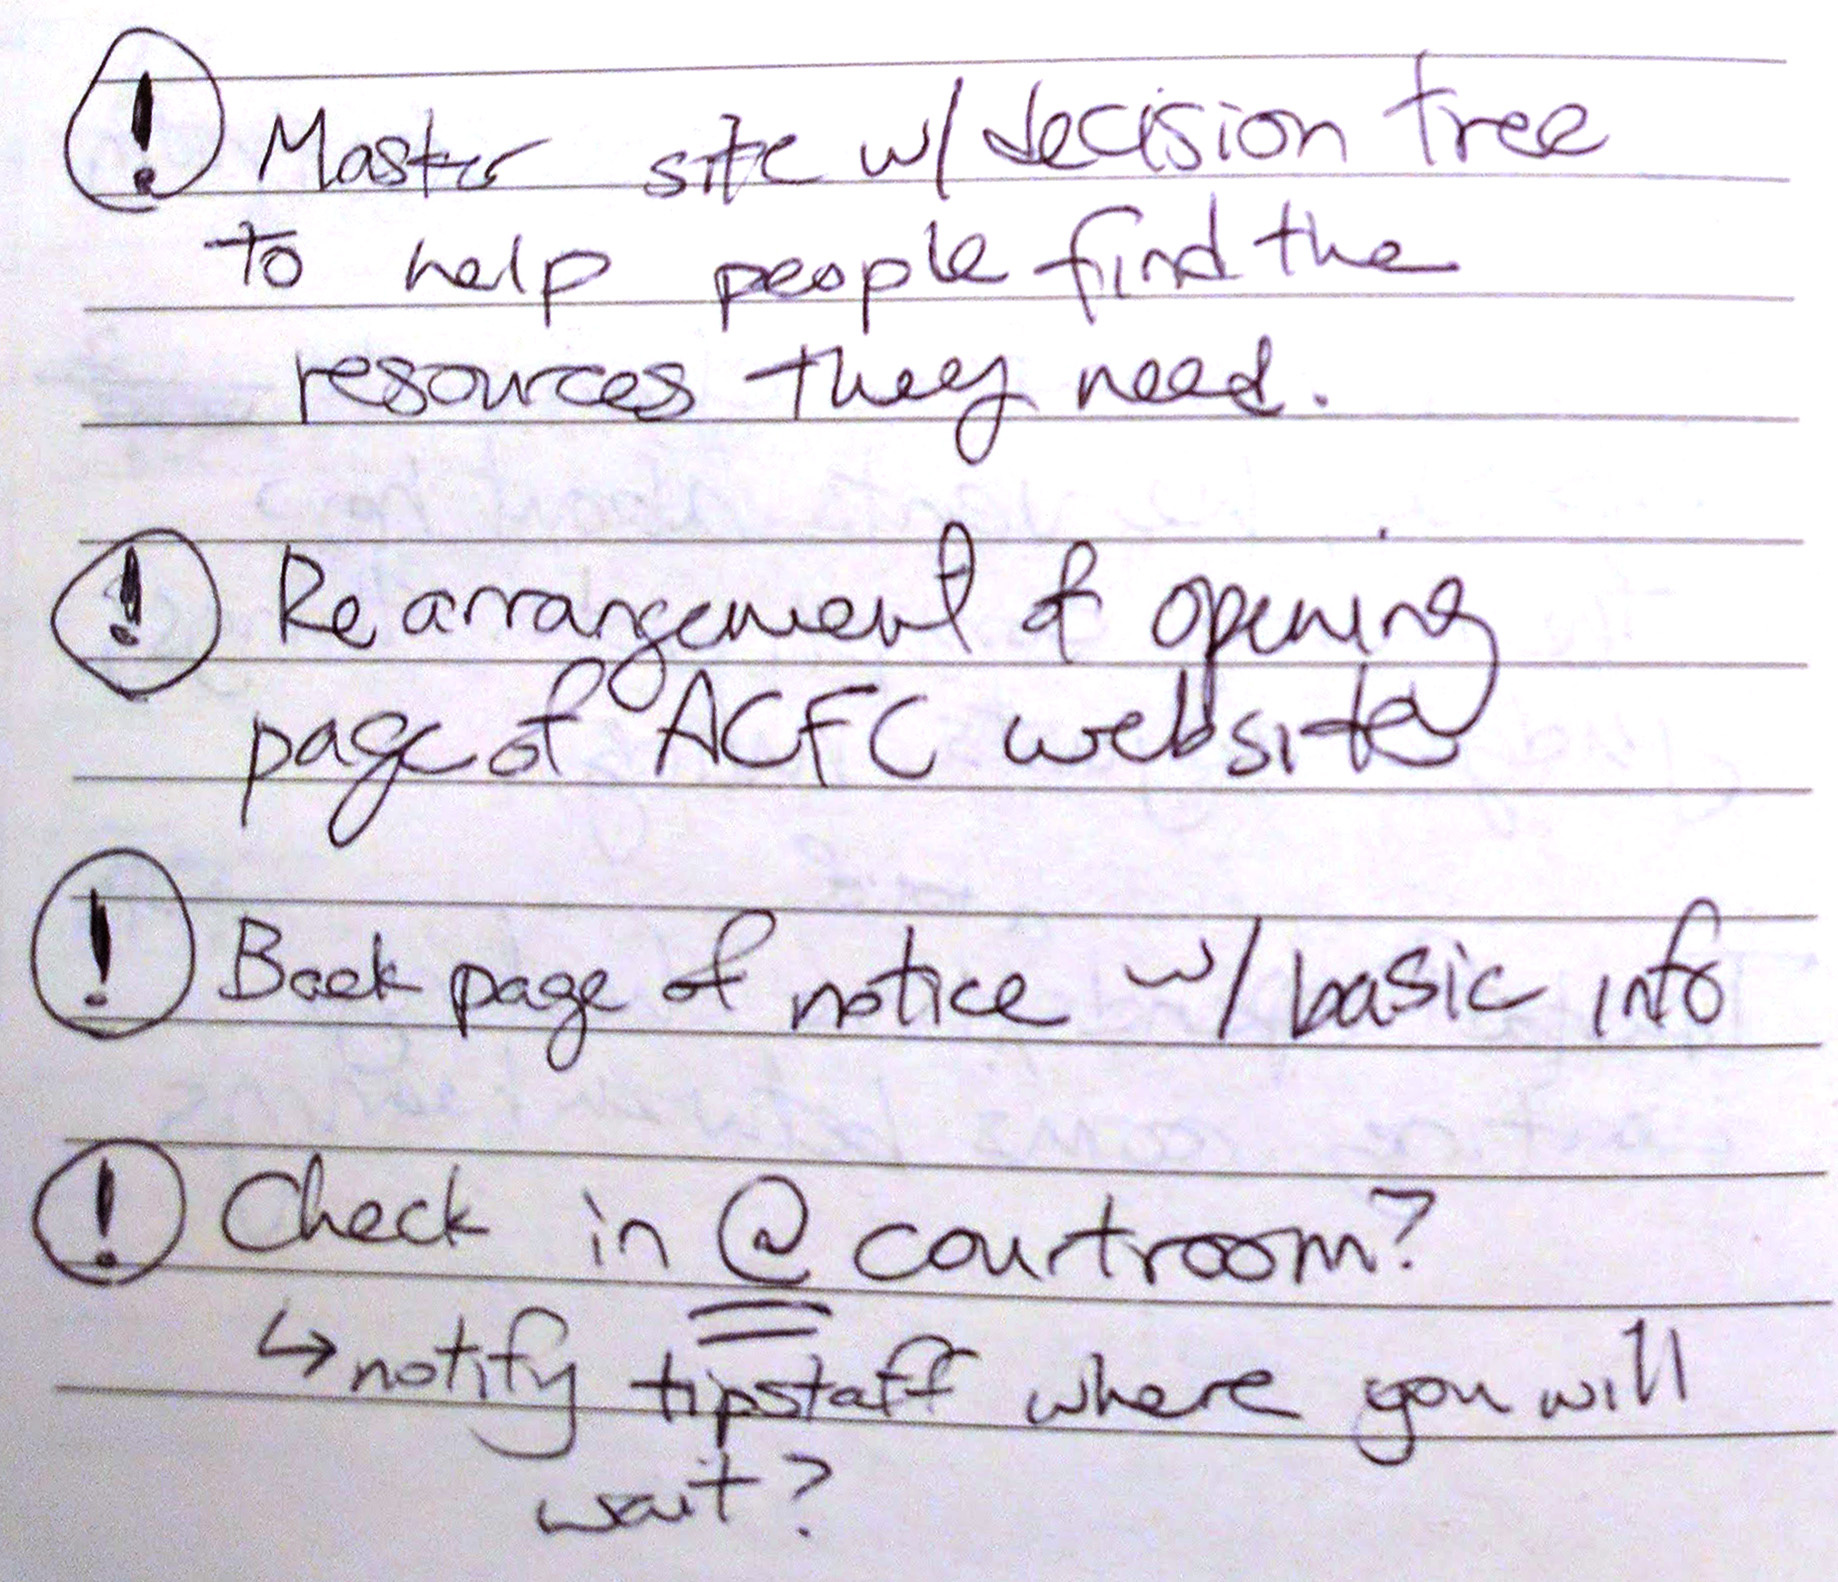 ! Master site w/ decision tree
to help people find the
resources they need.
! Rearrangement of opening
page of ACFC website
! Back page of notice w/ basic info
! Check in @ courtroom?
↳ notify tipstaff where you will
wait?